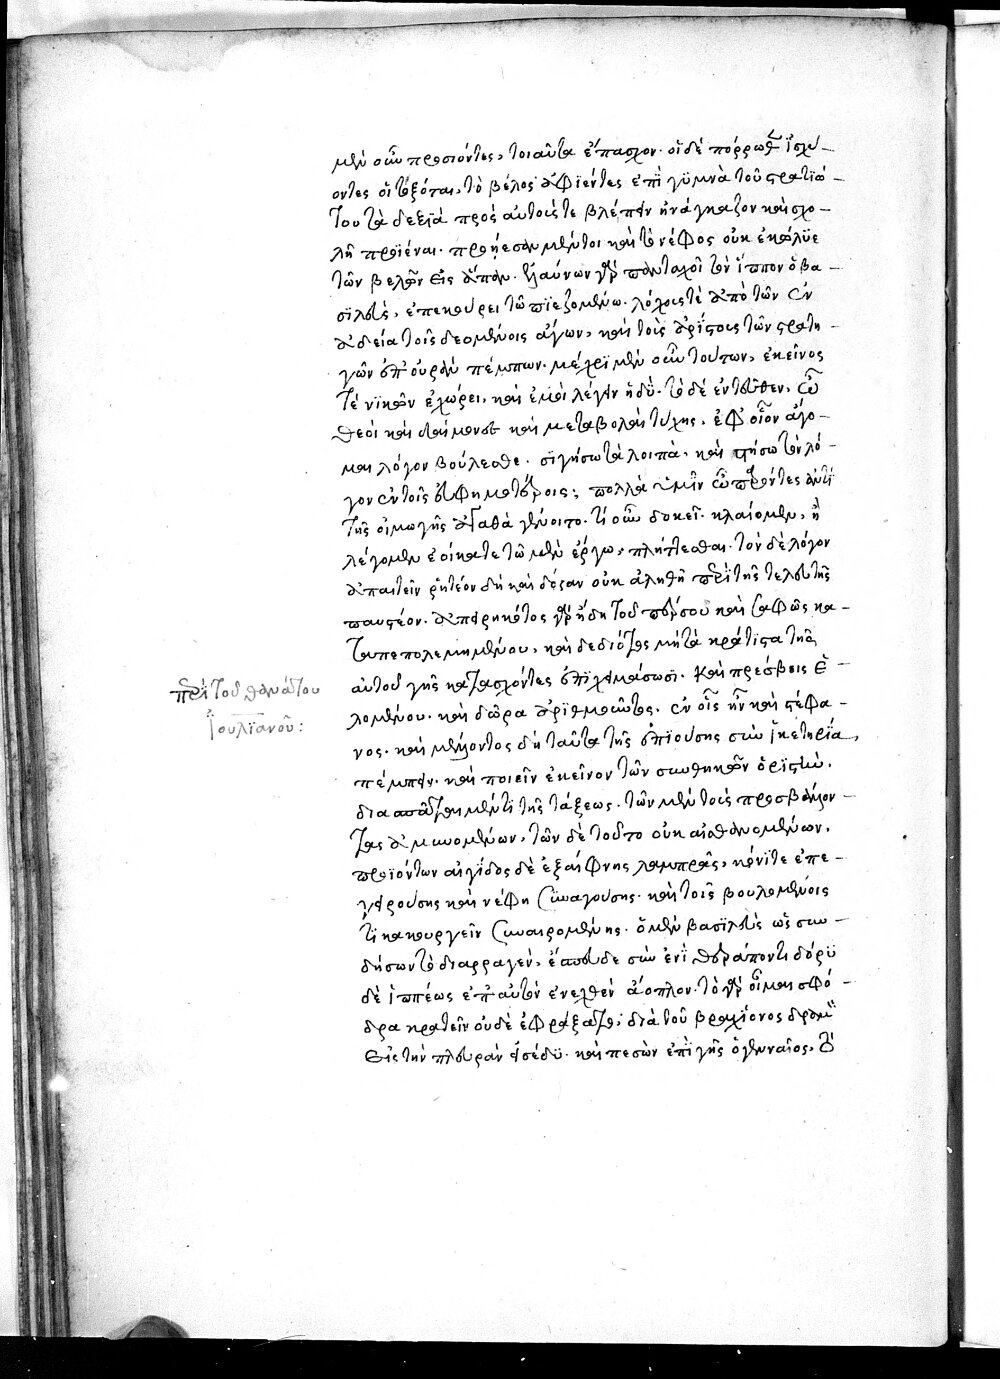 μὲν οὖν προσιόντες, τοιαῦτα ἔπασχον· οἱ δὲ πόρρωθεν ἰσχύ-
οντες οἱ τοξόται, τὸ βέλος ἀφιέντες ἐπὶ γυμνὰ τοῦ στρατιώ-
του τὰ δεξιὰ πρὸς αὐτούς τε βλέπειν ἠνάγκαζον καὶ σχο-
λῇ προϊέναι. προῄεσαν μέντοι καὶ τὸ νέφος οὐκ ἐκώλυε
τῶν βελῶν εἰς ἅπαν. ἐλαύνων γὰρ πανταχοῖ τὸν ἵππον ὁ βα-
σιλεὺς, ἐπεκούρει τῷ πιεζομένῳ. λόχους τὲ ἀπὸ τῶν ἐν
ἀδείᾳ τοῖς δεομένοις ἄγων, καὶ τοὺς ἀρίστους τῶν στρατη-
γῶν ἐπ' οὐρὰν πέμπων. μέχρι μὲν οὖν τούτων, ἐκεῖνος
τὲ νικῶν ἐχώρει, καὶ ἐμοὶ λέγειν ἡδύ. τὸ δὲ ἐντεῦθεν, ὦ
θεοὶ καὶ δαίμονες καὶ μεταβολαὶ τύχης, ἐφ' οἷον ἄγο-
μαι λόγον βούλεσθε. σιγήσω τὰ λοιπὰ, καὶ στήσω τὸν λό-
γον ἐν τοῖς εὐφημοτέροις; πολλὰ ὑμῖν ὦ παρόντες ἀντὶ
τῆς οἰμωγῆς ἀγαθὰ γένοιτο. τί οὖν δοκεῖ. κλαίομεν, ἢ
λέγομεν ἐοίκατε τῷ μὲν ἔργῳ, πλήττεσθαι. τὸν δὲ λόγον
ἀπαιτεῖν ῥητέον δὴ καὶ δόξαν οὐκ ἀληθῆ περὶ τῆς τελευτῆς
παυστέον. ἀπειρηκότος γὰρ ἤδη τοῦ πέρσου καὶ σαφῶς κα-
ταπεπολεμημένου, καὶ δεδιότος μὴ τὰ κράτιστα τῆς
αὑτοῦ γῆς κατασχόντες ἐπιχειμάσωσι. καὶ πρέσβεις ἑ-
λομένου, καὶ δῶρα ἀριθμοῦντος, ἐν οἷς ἦν καὶ στέφα-
νος, καὶ μέλλοντος δὴ ταῦτα τῆς ἐπιούσης σὺν ἱκετηρίᾳ,
πέμπειν, καὶ ποιεῖν ἐκεῖνον τῶν συνθηκῶν ὁριστήν,
διασπᾶται μέν τι τῆς τάξεως. τῶν μὲν τοὺς προσβάλλον-
τας ἀμυνομένων, τῶν δὲ τοῦτο οὐκ αἰσθανομένων,
προϊόντων αἰγίδος δὲ ἐξαίφνης λαμπρᾶς, κόνιν τε ἐπε-
γειρούσης καὶ νέφη συναγούσης, καὶ τοῖς βουλομένοις
τι κακουργεῖν συναιρομένης. ὁ μὲν βασιλεὺς ὡς συν-
δήσων τὸ διαρραγὲν, ἔσπευδε σὺν ἑνὶ θεράποντι δόρυ
δὲ ἱππέως ἐπ' αὐτὸν ἐνεχθὲν ἄοπλον. τῷ γὰρ οἶμαι σφό-
δρα κρατεῖν οὐδὲ ἐφράξατο, διὰ τοῦ βραχίονος δραμὸν
εἰς τὴν πλευρὰν εἰσέδυ. καὶ πεσὼν ἐπὶ γῆς ὁ γενναῖος,
περὶ τοῦ θανάτου
ἰουλιανοῦ: